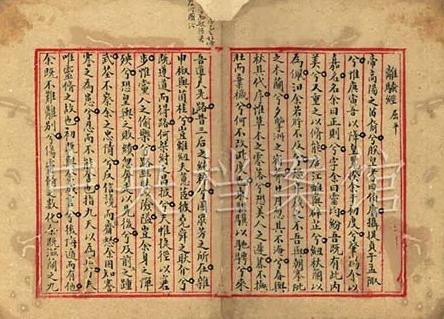 離騷經 屈平
帝高陽之苗裔兮朕皇考曰伯庸攝提貞于孟陬
兮惟庚寅吾以降皇覽揆余于初度兮肇錫余以
嘉名名余曰正則兮字余曰靈均紛吾既有此內
美兮又重之以脩能扈江離與辟芷兮紉秋蘭以
為佩汨余若將不及兮恐年歲之不吾與朝搴阰
之木蘭兮夕攬洲之宿莽日月忽其不淹兮春與
秋其代序惟草木之零落兮恐美人之遲暮不撫
壯而棄穢兮何不改此度乘騏驥以馳騁兮來
吾道夫先路昔三后之純粹兮固衆芳之所在雜
申椒與菌桂兮豈維紉夫蕙茝彼堯舜之耿介兮
既遵道而得路何桀紂之昌披兮夫唯捷徑以窘
步惟黨人之偷樂兮路幽昧以險隘豈余身之憚
殃兮恐皇輿之敗績忽奔走以先後兮及前王之踵
武荃不察余之中情兮反信讒而齌怒余固知謇
謇之為患兮忍而不能舍也指九天以為正兮夫
唯靈脩之故也初既與余成言兮後悔遁而有他
余既不難離別兮傷靈脩之數化余既滋蘭之九